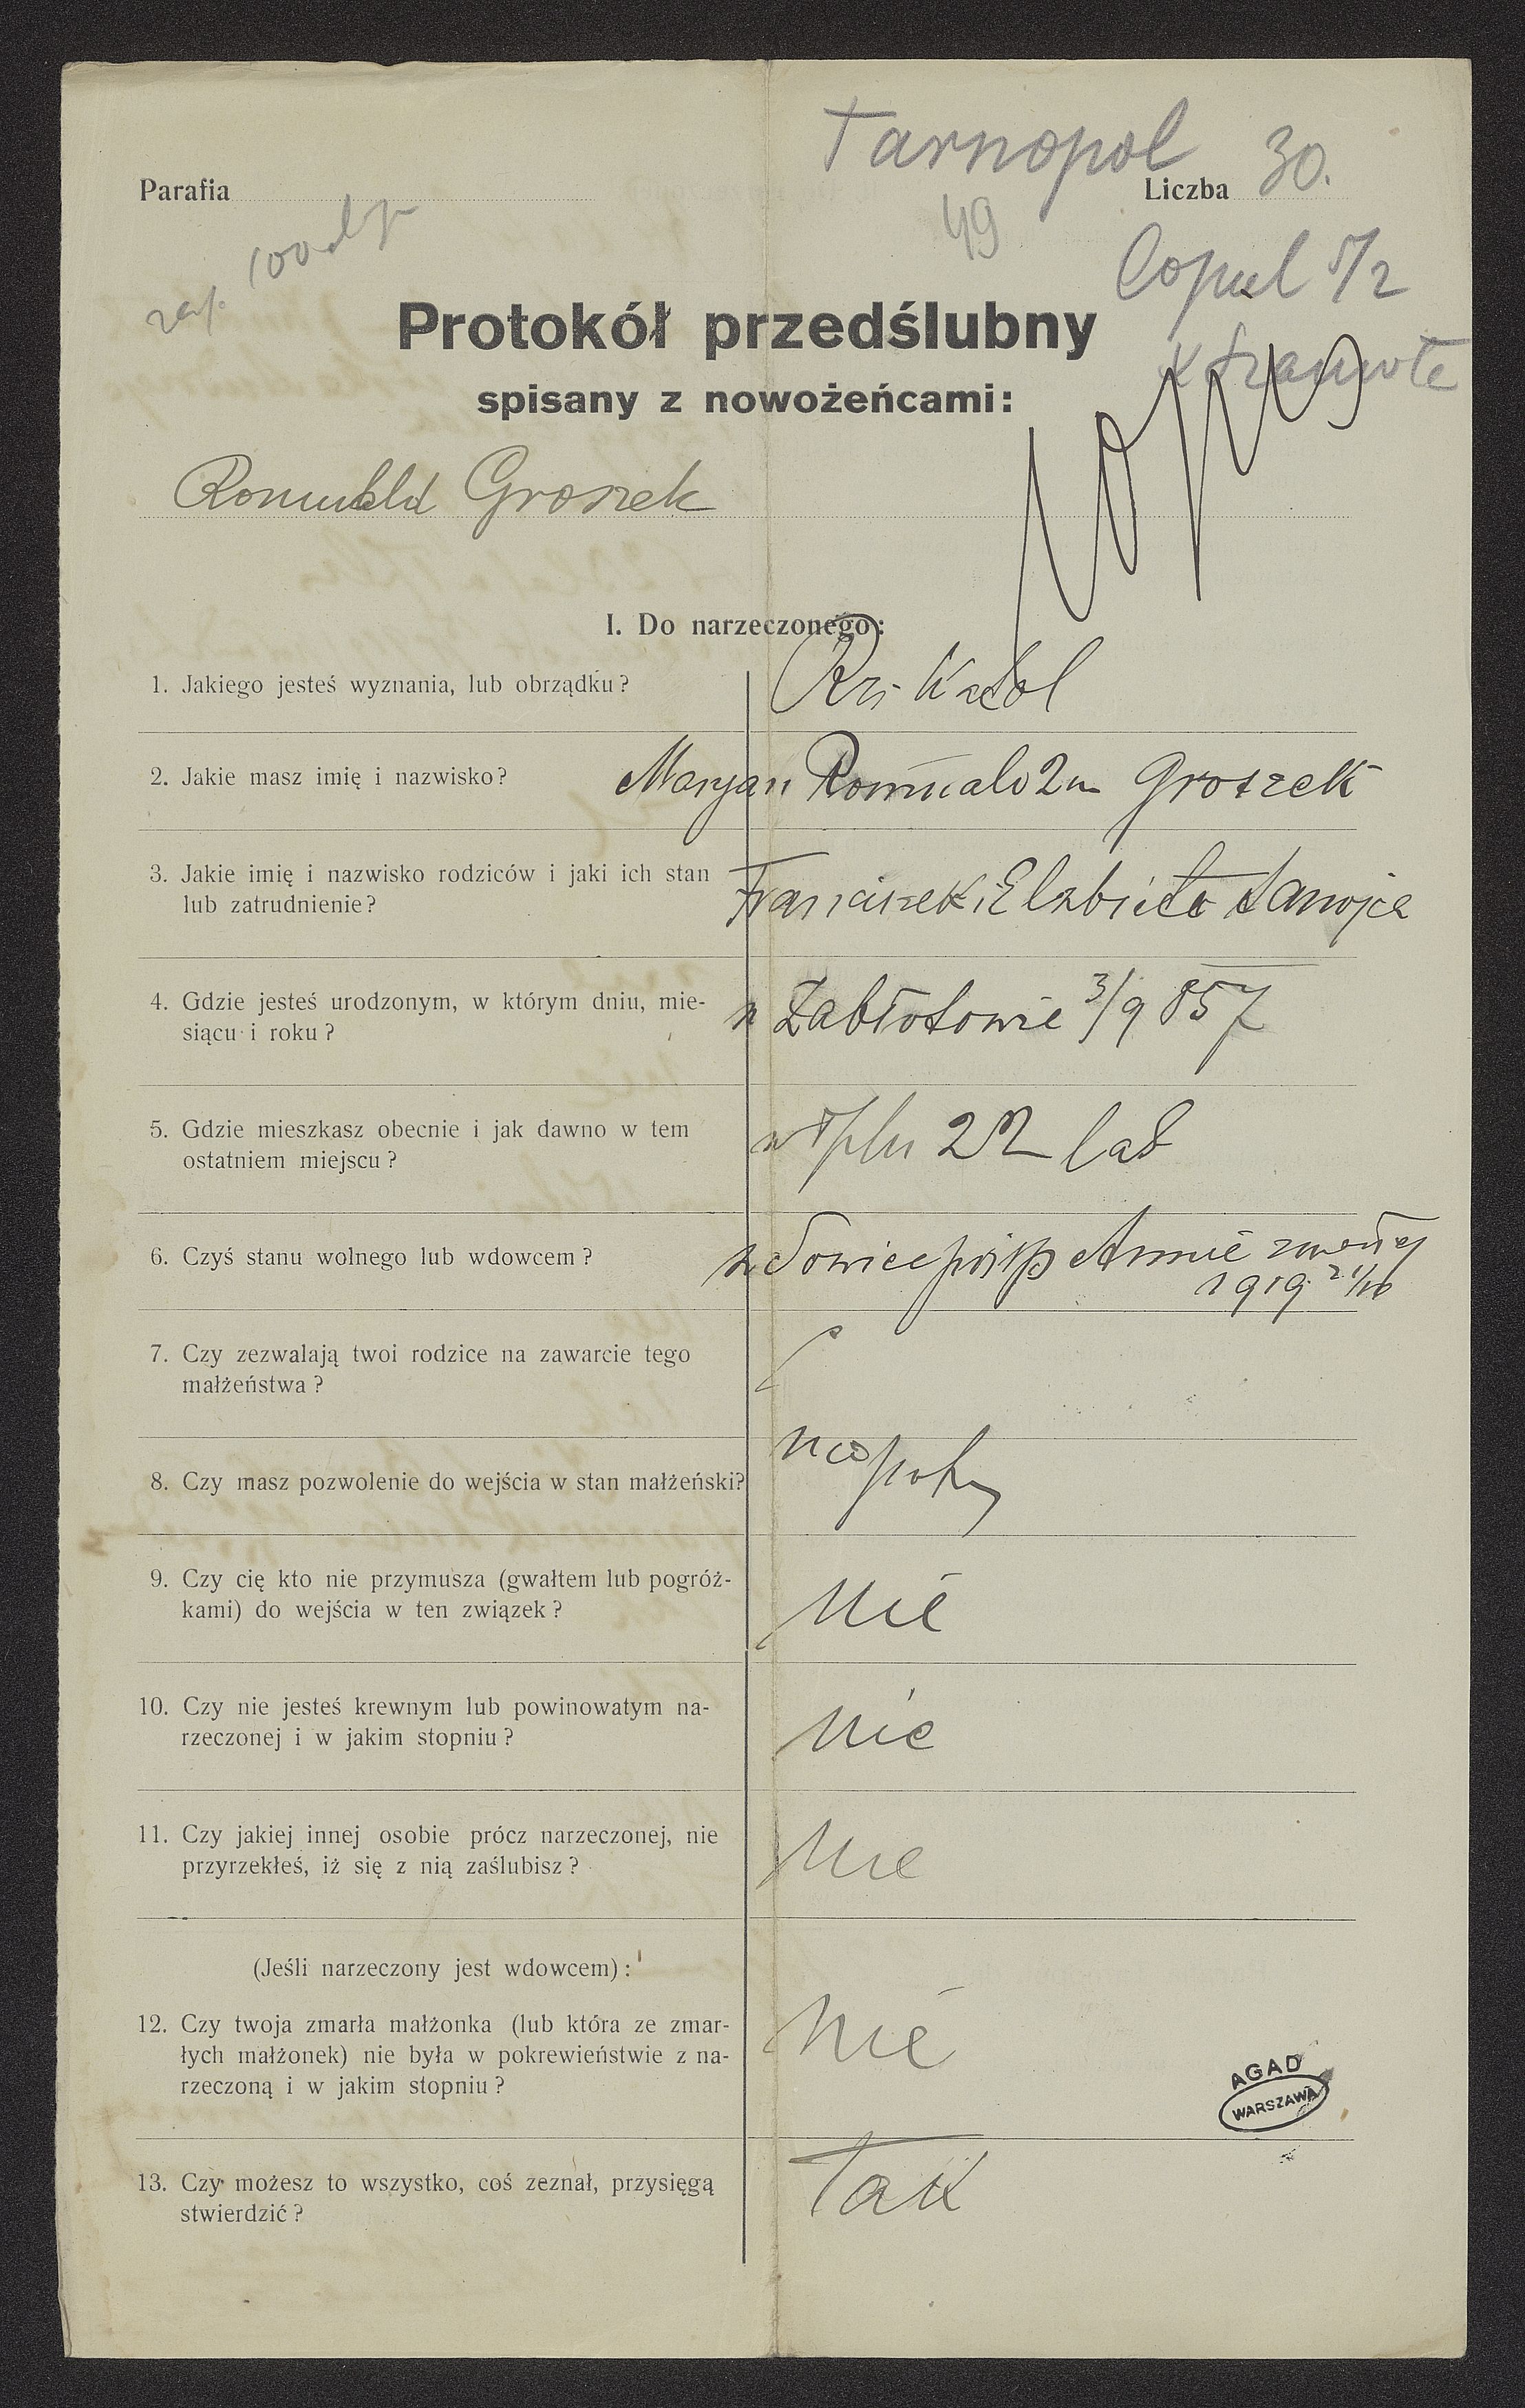 Tarnopol
Parafia
Liczba 30.
49
zap.
Copul 5/2
Protokół przedślubny
spisany z nowożeńcami:
Romuald Groszek
I. Do narzeczonego:
1. Jakiego jesteś wyznania, lub obrządku?
Rz. Katol
2. Jakie masz imię i nazwisko?
Maryan Romuald 2im Groszek
3. Jakie imię i nazwisko rodziców i jaki ich stan
lub zatrudnienie?
Franciszek i Elżbieta
4. Gdzie jesteś urodzonym, w którym dniu, mie-
siącu i roku?
w Zabłotowie 3/9 857
5. Gdzie mieszkasz obecnie i jak dawno w tem
ostatniem miejscu?
w Tplu 22 lat
6. Czyś stanu wolnego lub wdowcem?
wdowiec po śp Annie zmarłej
1919 21/10
7. Czy zezwalają twoi rodzice na zawarcie tego
małżeństwa?
8. Czy masz pozwolenie do wejścia w stan małżeński?
9. Czy cię kto nie przymusza (gwałtem lub pogróż-
kami) do wejścia w ten związek?
nie
10. Czy nie jesteś krewnym lub powinowatym na-
rzeczonej i w jakim stopniu?
nie
11. Czy jakiej innej osobie prócz narzeczonej, nie
przyrzekłeś, iż się z nią zaślubisz?
nie
(Jeśli narzeczony jest wdowcem):
12. Czy twoja zmarła małżonka (lub która ze zmar-
łych małżonek) nie była w pokrewieństwie z na-
rzeczoną i w jakim stopniu?
nie
AGAD
WARSZAWA
13. Czy możesz to wszystko, coś zeznał, przysięgą
stwierdzić?
Tak